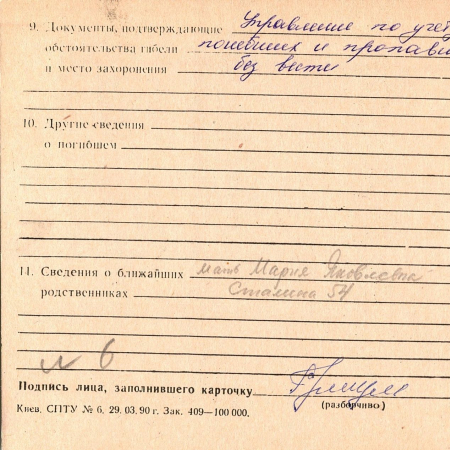 9. Документы, подтверждающие Управление по учёту
обстоятельства гибели погибших и пропавш
и место захоронения без вести
10. Другие сведения
о погибшем
11. Сведения о ближайших мать Мария Яковлевна
родственниках Сталина 54
N 6
Подпись лица, заполнившего карточку
(разборчиво)
Киев. СПТУ № 6. 29. 03. 90 г. Зак. 409—100 000.